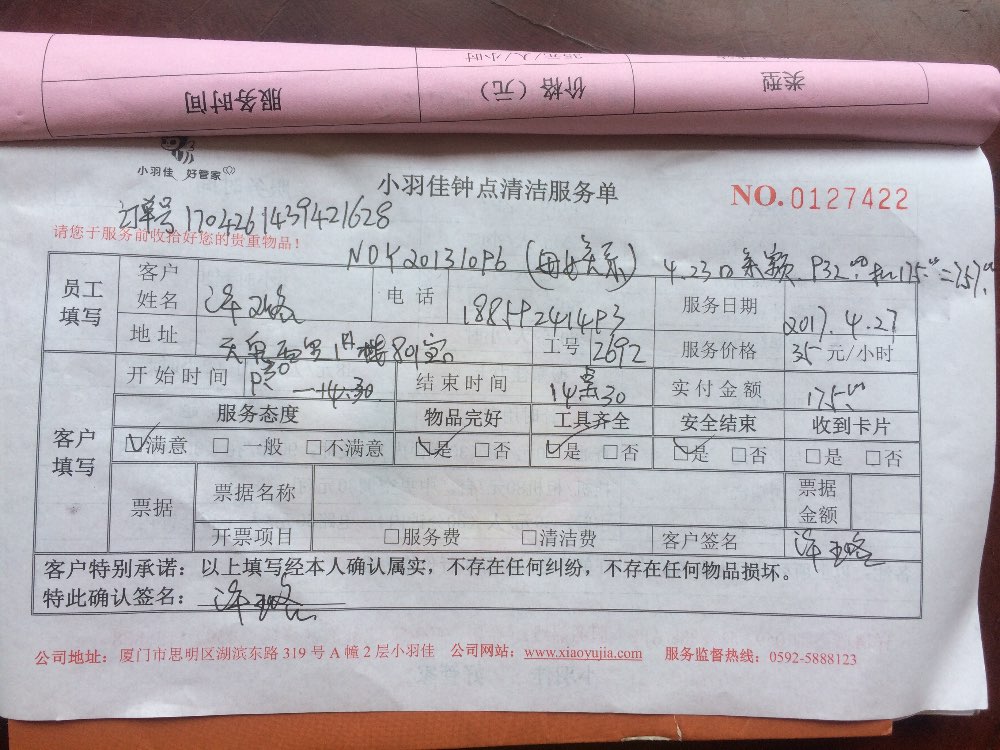 35元/人/小时
服务时间 价格（元） 类型
小羽佳 好管家
小羽佳钟点清洁服务单
NO.0127422
订单号 1704261439421628
请您于服务前收拾好您的贵重物品！
员工填写
客户姓名
电话
服务日期 2017.4.27
地址
工号 2692
服务价格 35元/小时
开始时间
结束时间
实付金额 175
客户填写
服务态度 物品完好 工具齐全 安全结束 收到卡片
☑满意 □一般 □不满意 ☑是 □否 ☑是 □否 ☑是 □否 □是 □否
票据
票据名称
票据金额
开票项目 □服务费 □清洁费 客户签名
客户特别承诺：以上填写经本人确认属实，不存在任何纠纷，不存在任何物品损坏。
特此确认签名：
公司地址：厦门市思明区湖滨东路 319 号 A 幢 2 层小羽佳 公司网站：www.xiaoyujia.com 服务监督热线：0592-5888123